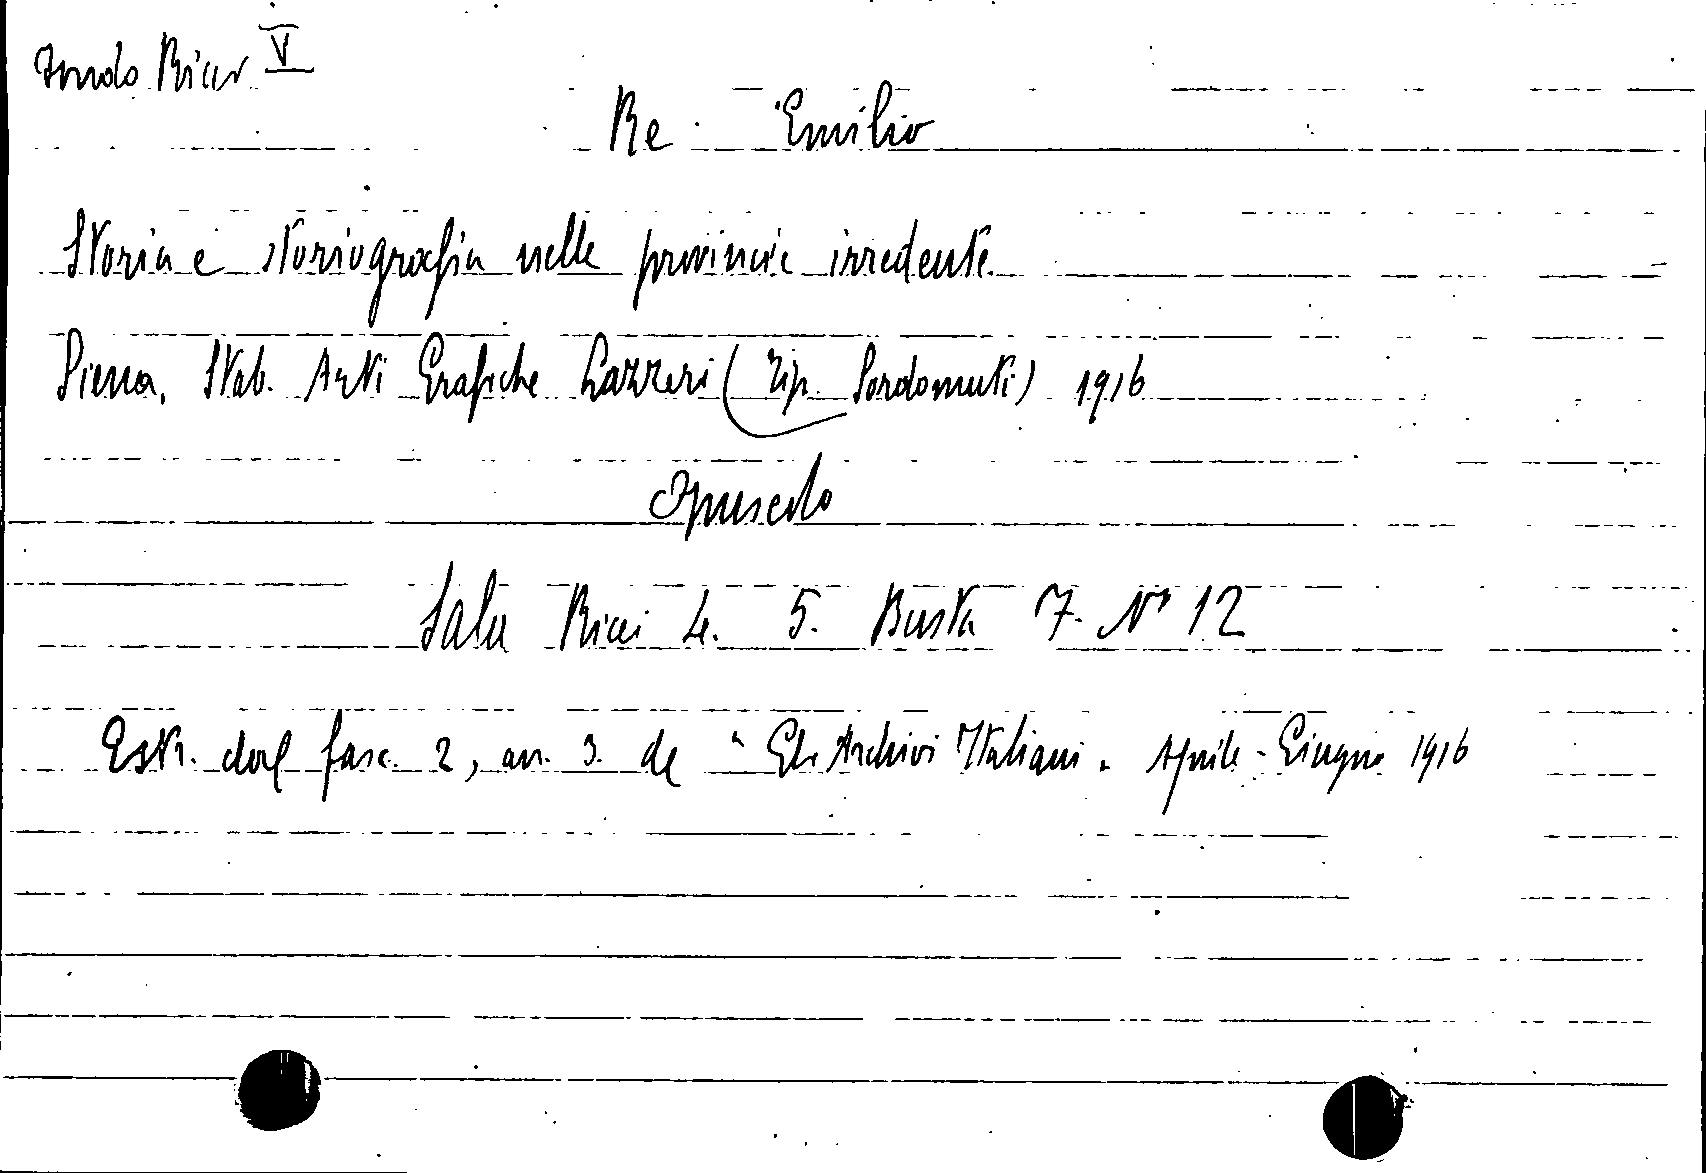 Fondo Ricci V
Re Emilio
Storia e storiografia nelle provincie irredente
Siena, Stab. Arti Grafiche Lazzeri (Tip. Sordomuti) 1916
Opuscolo
Sala Ricci 4. 5. Busta 7. N° 12
Estr. dal fasc. 2, an. 3. de "Gli Archivi Italiani. Aprile-Giugno 1916